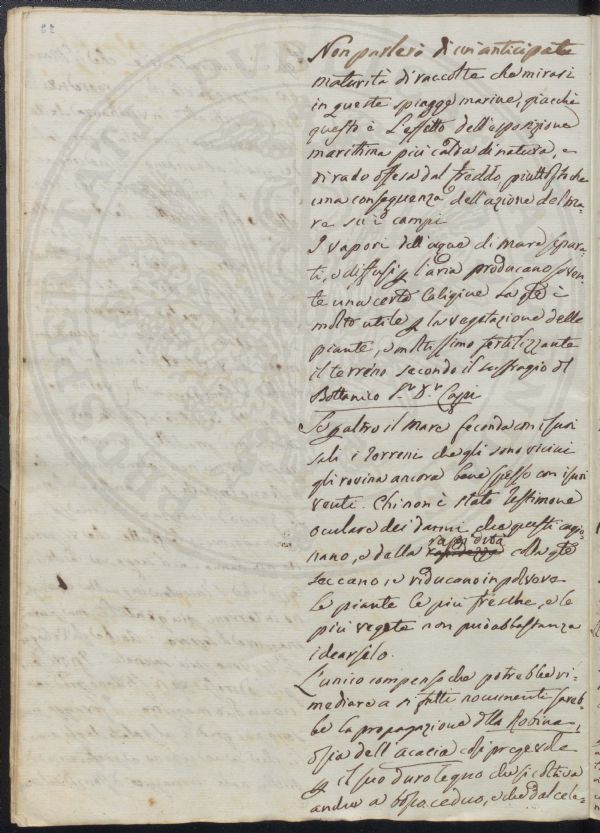 Non parlerò di un'anticipata
maturità di raccolte che mirasi
in queste spiagge marine, giacchè
questo è l'effetto dell'esposizione
marittima più calda di natura, e
di rado offesa dal freddo piuttosto che
una conseguenza dell'azione del ma-
re su i campi
I vapori dell'acque di mare separa-
ti, e diffusi p l'aria producano soven-
te una certa Caligine la qle è
molto utile p la vegetazione delle
piante, e moltissimo fertilizzante
il terreno secondo il suffragio del
Bottanico Sr. Dr.
Se p altro il mare feconda con i suoi
sali i terreni che gli sono vicini
gli rovina ancora bene spesso con i suoi
venti. Chi non è stato testimone
oculare dei danni che questi cagio-
nano, e della rapidità colla qle
seccano, e riducano in polvere
le piante le più fresche, e le
più vegete non può abbastanza
idearselo.
L'unico compenso che potrebbe ri-
mediare a sì fatti nocumenti sareb-
be la propagazione della Robinia,
ossia dell'acacia così pregevole
p il suo duro legno che si coltiva
anche a bosco ceduo, e che dal cela-